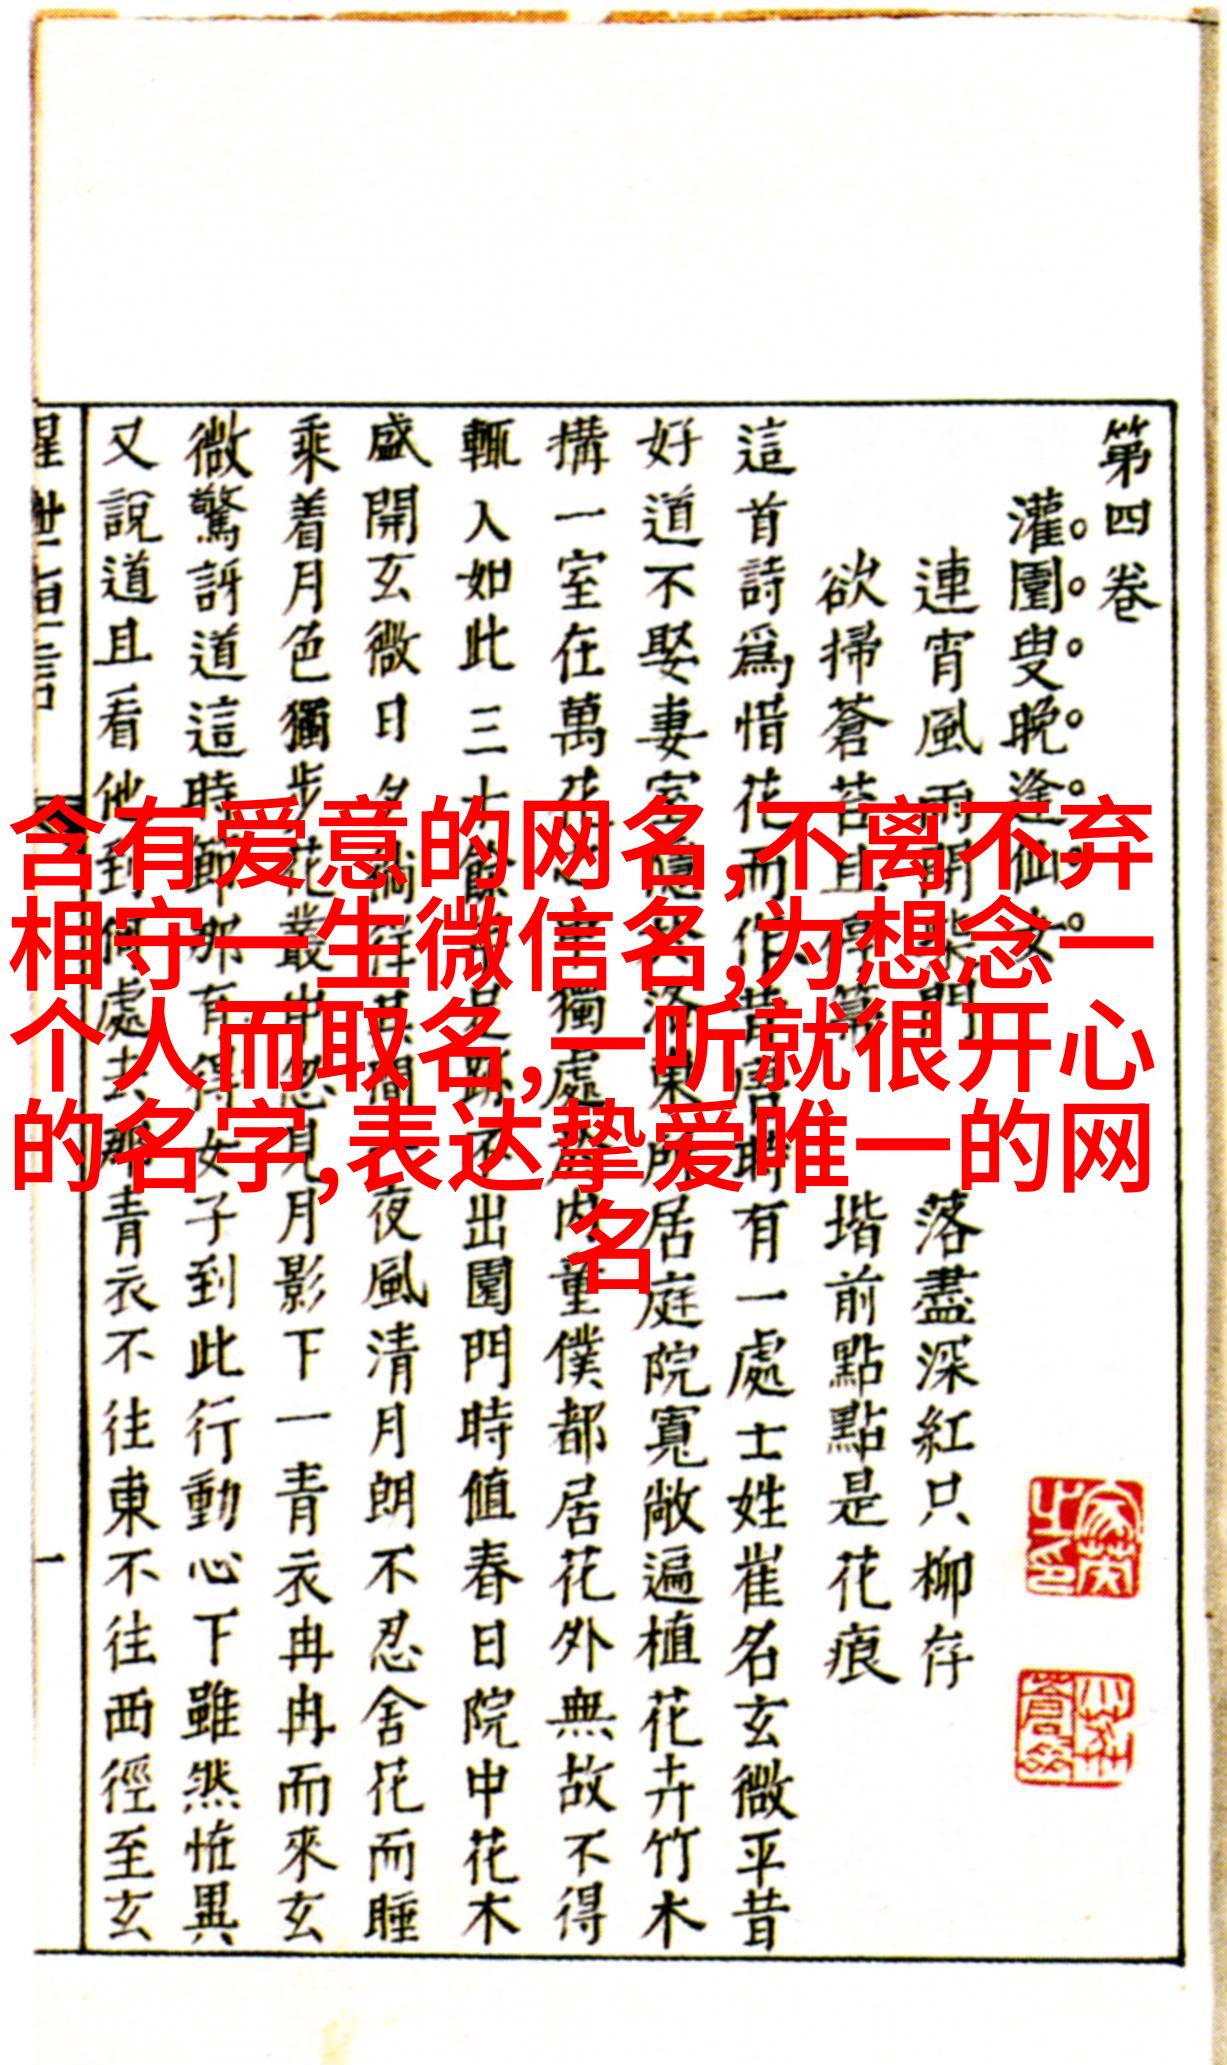 含有爱意的网名,不离不弃
相守一生微信名,为想念一
个人而取名,一听就很开心
的名字,表达挚爱唯一的网
名
第四卷
灌園叟晚逢仙女
連宵風雨閉柴門 落盡深紅只柳存
欲掃蒼苔且 堦前點點是花痕
這首詩爲惜花而作昔唐時有一處士姓崔名玄微平昔
好道不娶妻室隱於洛東所居庭院寬敞遍植花卉竹木
搆一室在萬花之中獨處於內童僕都居花外無故不得
輒入如此三十餘年足跡不出園門時值春日院中花木
盛開玄微日夕徜徉其間一夜風清月朗不忍舍花而睡
乘着月色獨步花叢中忽見月影下一青衣冉冉而來玄
微驚訝道這時節那有得女子到此行動心下雖然恠異
又說道且看他到何處去那青衣不往東不往西徑至玄
一